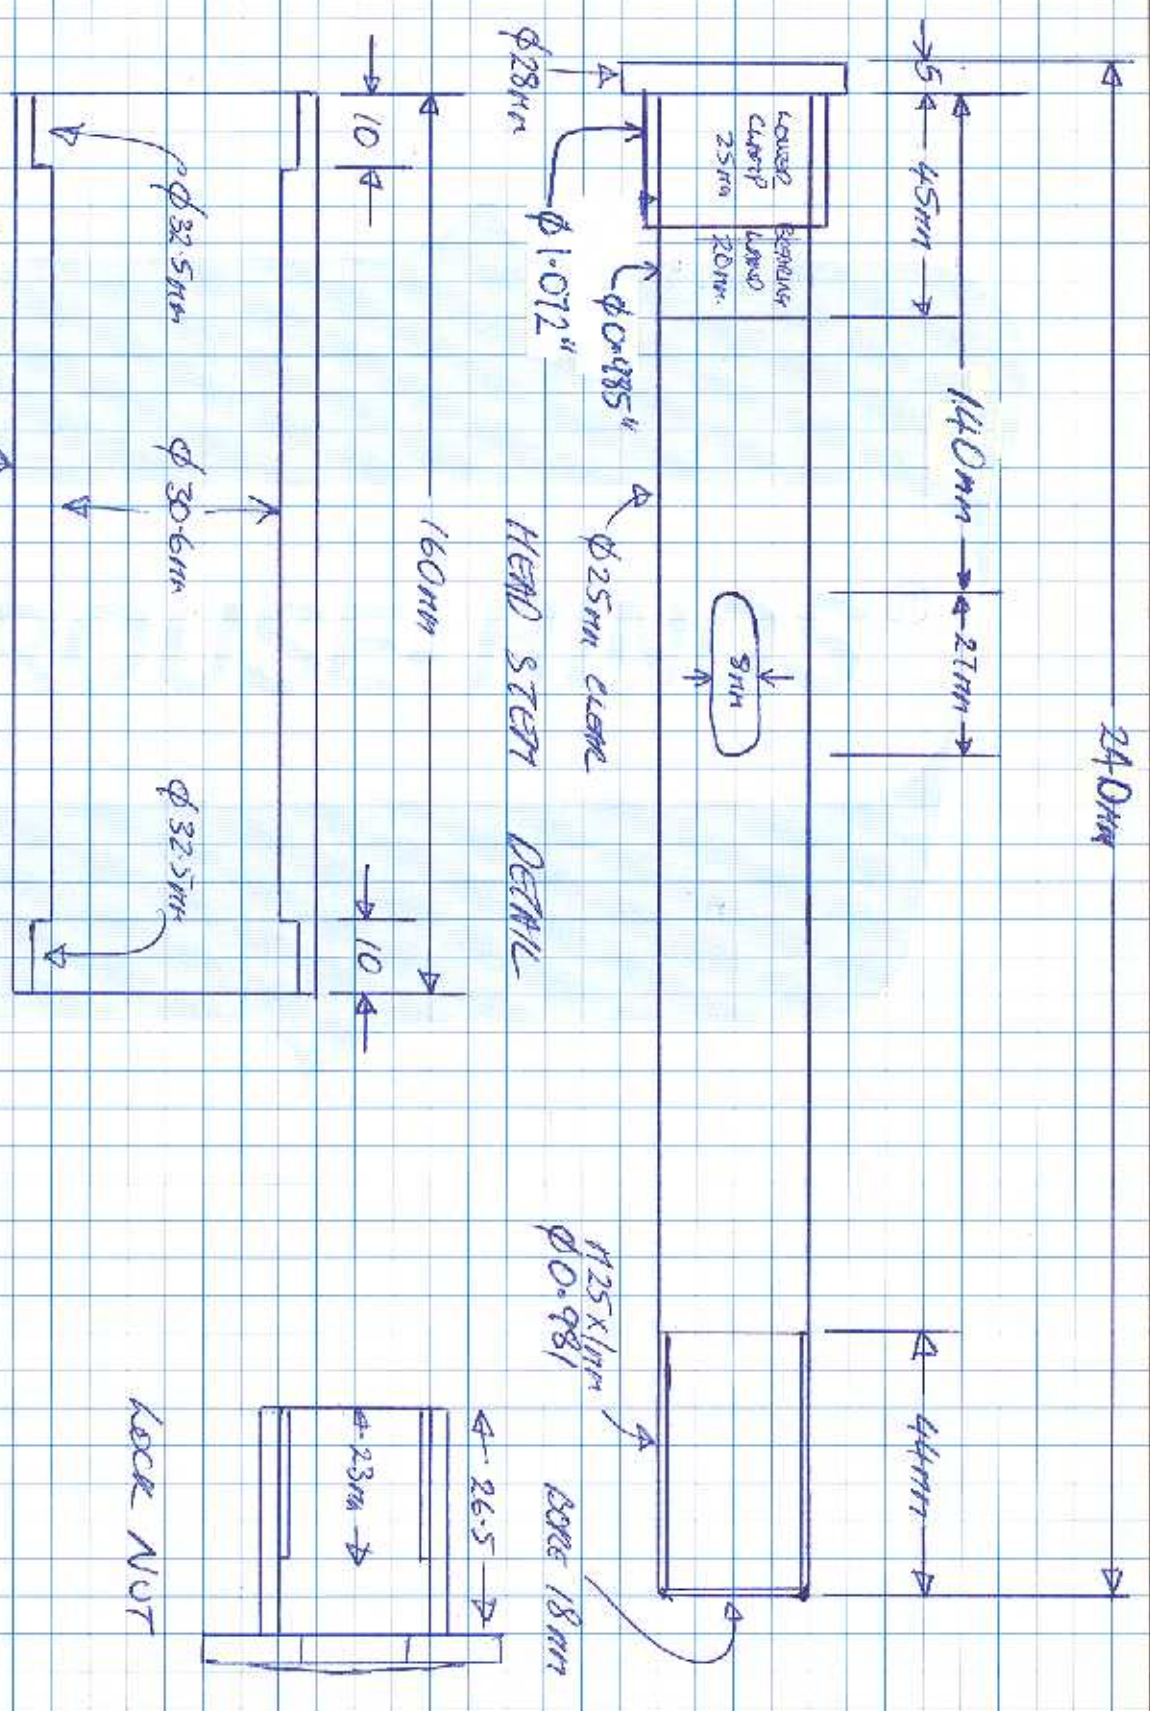 240mm
5
45mm
140mm
27mm
44mm
LOWER
CLAMP
25mm
BEARING
LAND
20mm.
8mm
φ28mm
φ1.072"
φ0.985"
φ25mm CLEAR
M25 X 1mm
φ0.981
BORE 18mm
HEAD STEM DETAIL
160mm
10
10
φ32.5mm
φ30.6mm
φ32.5mm
26.5
23mm
LOCK NUT